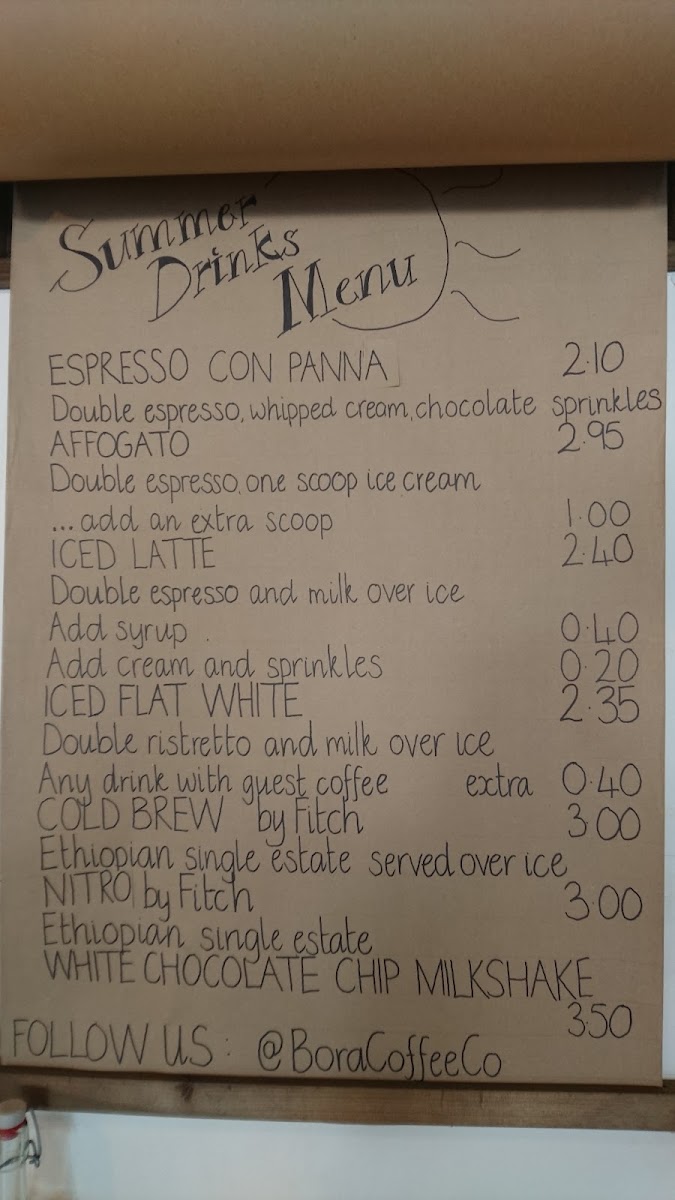 Summer
Drinks
Menu
ESPRESSO CON PANNA 2.10
Double espresso, whipped cream, chocolate sprinkles
AFFOGATO 2.95
Double espresso, one scoop ice cream
...add an extra scoop 1.00
ICED LATTE 2.40
Double espresso and milk over ice
Add syrup 0.40
Add cream and sprinkles 0.20
ICED FLAT WHITE 2.35
Double ristretto and milk over ice
Any drink with guest coffee extra 0.40
COLD BREW by Fitch 3.00
Ethiopian single estate served over ice
NITRO by Fitch 3.00
Ethiopian single estate
WHITE CHOCOLATE CHIP MILKSHAKE
3.50
FOLLOW US: @BoraCoffeeCo